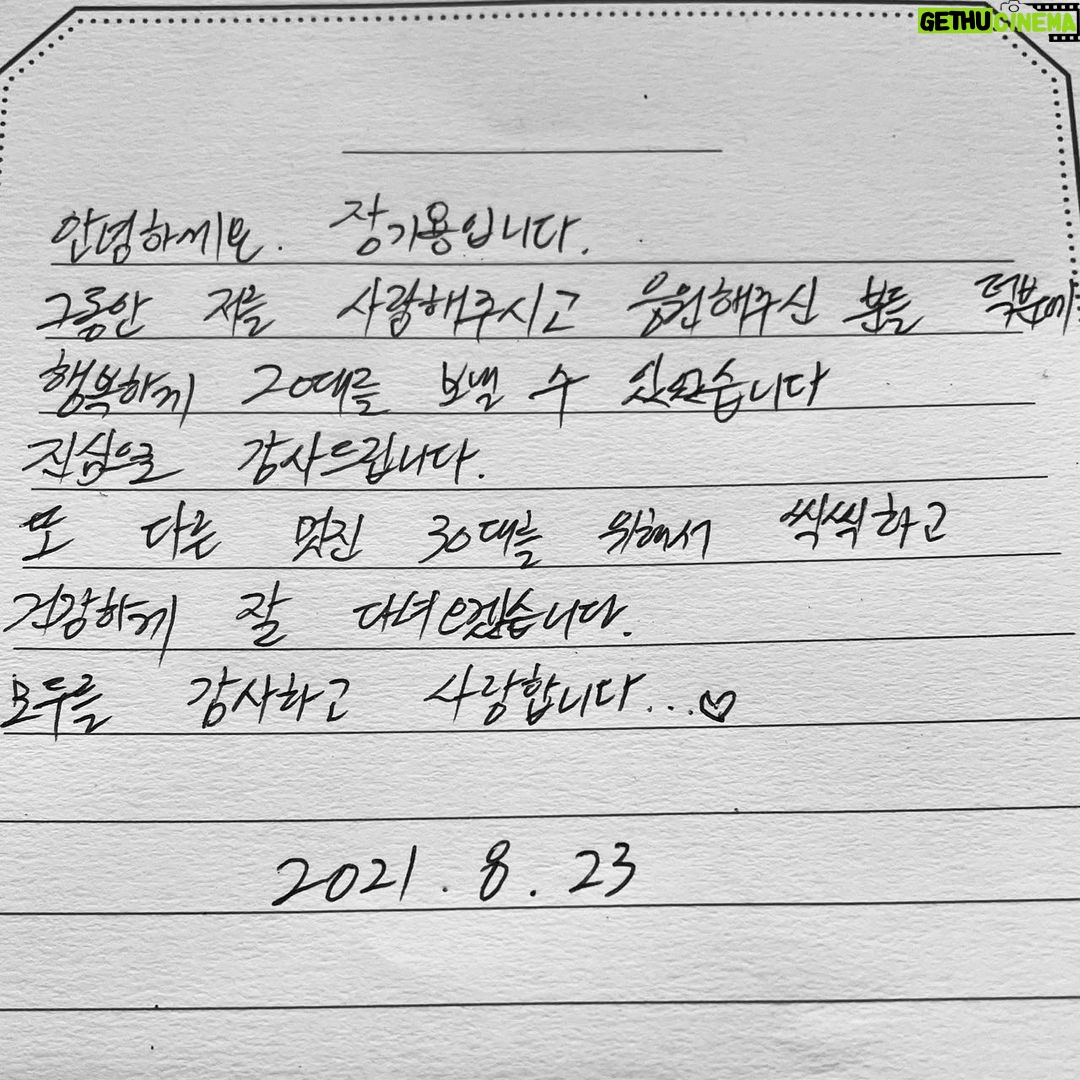 GETHUCINEMA
안녕하세요. 장기용입니다.
그동안 저를 사랑해주시고 응원해주신 분들 덕분에
행복하게 20대를 보낼 수 있었습니다
진심으로 감사드립니다.
또 다른 멋진 30대를 위해서 씩씩하고
건강하게 잘 다녀오겠습니다.
모두를 감사하고 사랑합니다...♡
2021. 8. 23